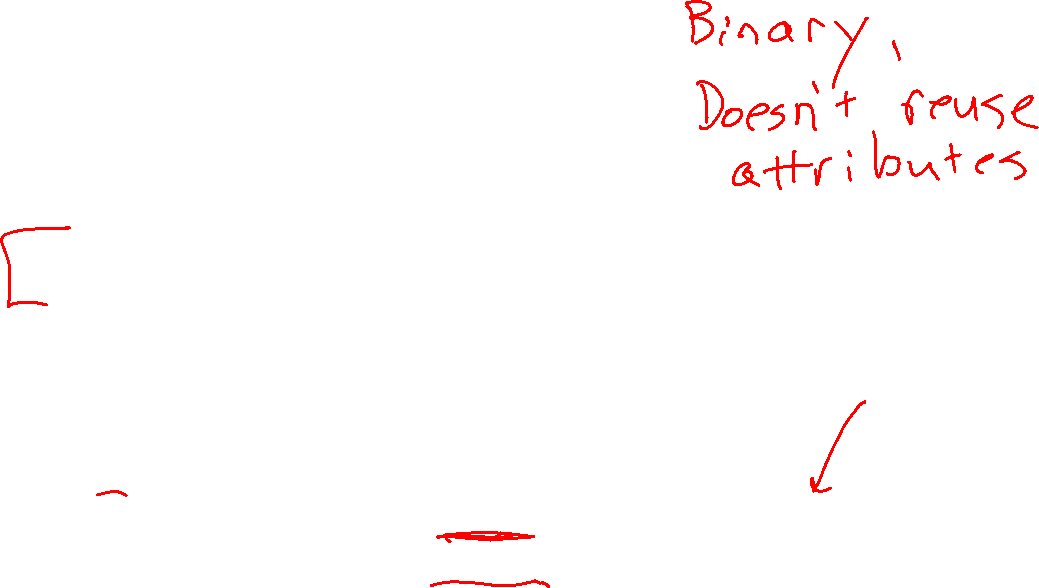 Binary,
Doesn't reuse
attributes